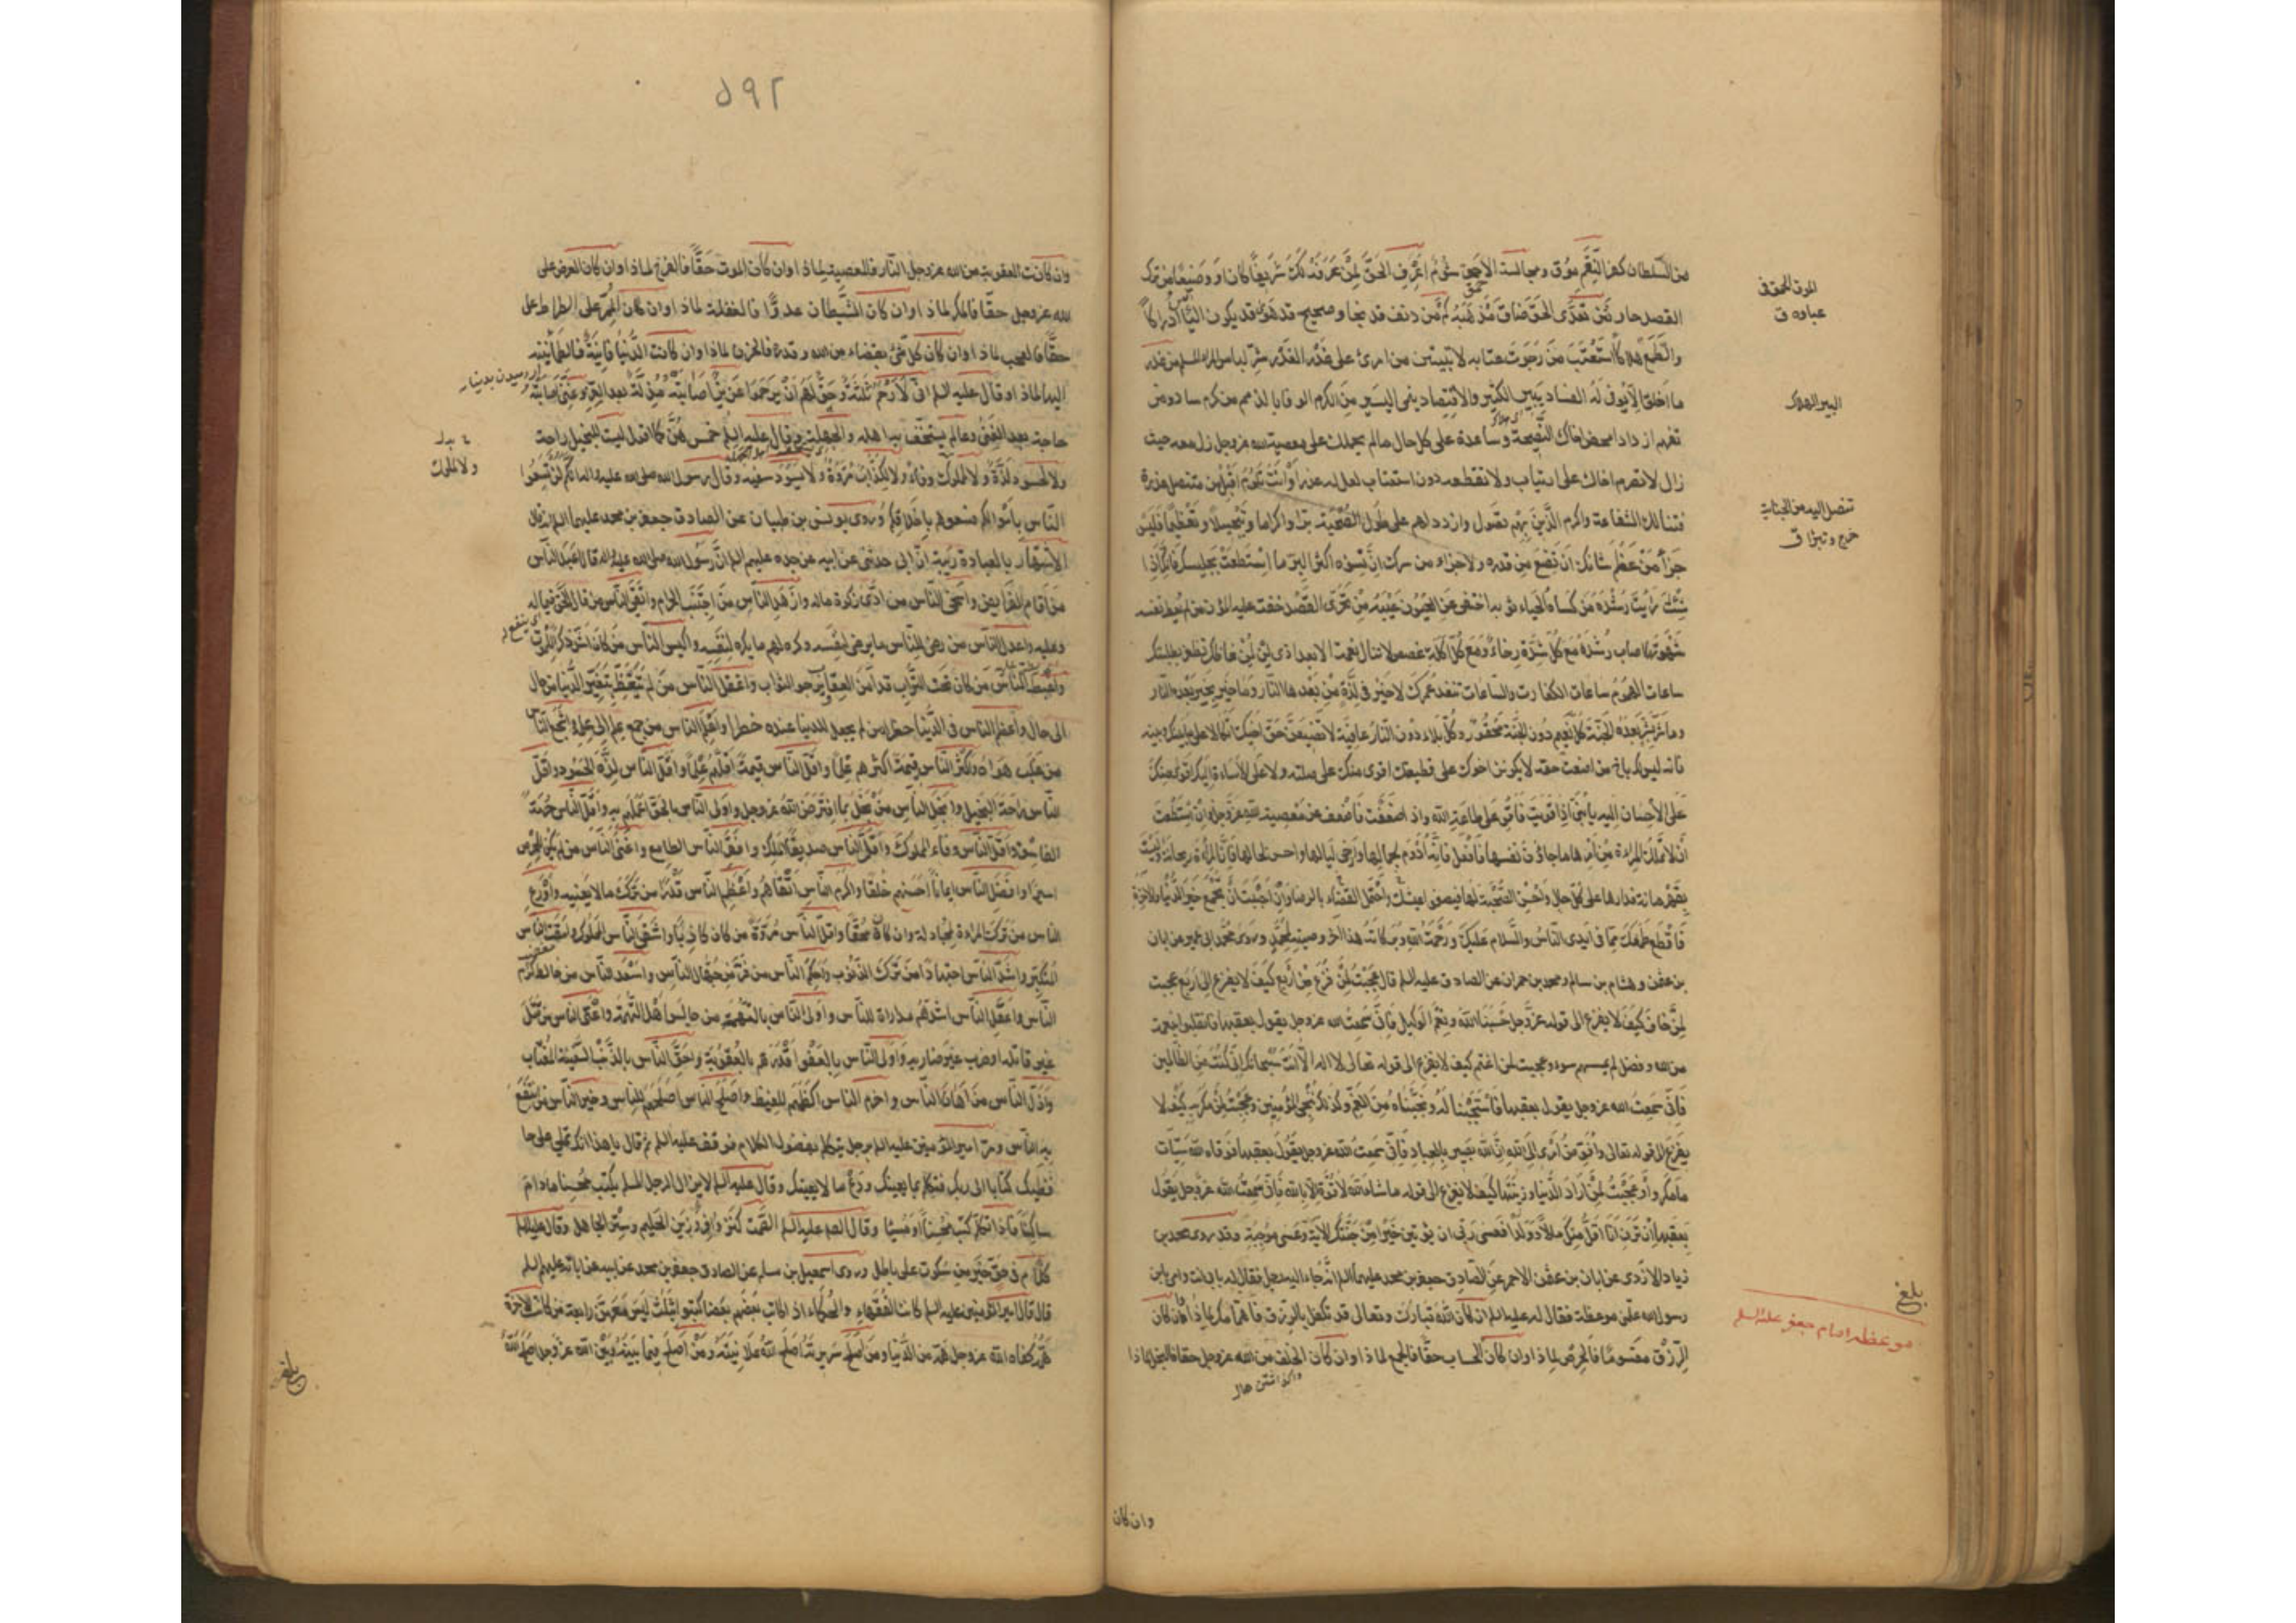 من السلطان كفر النعم موق ومجالسة الاحمق شؤم اعرف الحق لمن عرفه لك شريفا كان او وضيعا من ترك
القصد جار من تعدى الحق ضاق مذهبه كم من دنف قد نجا وصحيح قد هوى قد يكون اليأس ادراكا
والطمع هلاكا استعتب من رجوت عتابه لا تبيتن من امرئ على غدر الغدر شر لباس المرء المسلم من غدر
ما اخلق الا يوفى له الفساد يبير الكثير والاقتصاد ينمي اليسير من الكرم الوفاء بالذمم من كرم ساد ومن
تفهم ازداد امحض اخاك النصيحة وساعده على كل حال ما لم يحملك على معصية الله عز وجل زل معه حيث
زال لا تصرم اخاك على ارتياب ولا تقطعه دون استعتاب لعل له عذرا وانت تلوم اقبل من متنصل عذره
فتنالك الشفاعة واكرم الذين بهم تصول وازدد لهم على طول الصحبة برا واكراما وتبجيلا وتعظيما فليس
جزاء من عظم شانك ان تضع من قدره ولا جزاء من سرك ان تسوءه اكثر البر ما استطعت لجليسك فانك اذا
شئت رايت رشده من كساه الحياء ثوبه اختفى عن العيون عيبه من تحرى القصد خفت عليه المؤن من لم يعط نفسه
شهوتها اصاب رشده مع كل شدة رخاء ومع كل اكلة غصص لا تنال نعمة الا بعد اذى لن لمن غاظك تظفر بطلبتك
ساعات الهموم ساعات الكفارات والساعات تنفد عمرك لا خير في لذة من بعدها النار وما خير بخير بعده النار
وما شر بشر بعده الجنة كل نعيم دون الجنة محقور وكل بلاء دون النار عافية لا تضيعن حق اخيك اتكالا على ما بينك وبينه
فانه ليس لك باخ من اضعت حقه لا يكونن اخوك على قطيعتك اقوى منك على صلته ولا على الاساءة اليك اقوى منك
على الاحسان اليه يا بني اذا قويت فاقو على طاعة الله واذا ضعفت فاضعف عن معصية الله عز وجل وان استطعت
ان لا تملك المراة من امرها ما جاوز نفسها فافعل فانه ادوم لجمالها وارخى لبالها واحسن لحالها فان المراة ريحانة وليست
بقهرمانة فدارها على كل حال واحسن الصحبة لها فيصفو عيشك واحتمل القضاء بالرضا وان احببت ان تجمع خير الدنيا والاخرة
فاقطع طمعك مما في ايدي الناس والسلام عليك ورحمة الله وبركاته هذا اخر وصيته لمحمد وروى محمد بن ابي عمير عن ابان
بن عثمن وهشام بن سالم ومحمد بن حمران عن الصادق عليه السلم قال عجبت لمن فزع من اربع كيف لا يفزع الى اربع عجبت
لمن خاف كيف لا يفزع الى قوله عز وجل حسبنا الله ونعم الوكيل فاني سمعت الله عز وجل يقول بعقبها فانقلبوا بنعمة
من الله وفضل لم يمسسهم سوء وعجبت لمن اغتم كيف لا يفزع الى قوله تعالى لا اله الا انت سبحانك اني كنت من الظالمين
فاني سمعت الله عز وجل يقول بعقبها فاستجبنا له ونجيناه من الغم وكذلك ننجي المؤمنين وعجبت لمن مكر به كيف لا
يفزع الى قوله تعالى وافوض امري الى الله ان الله بصير بالعباد فاني سمعت الله عز وجل يقول بعقبها فوقاه الله سيئات
ما مكروا وعجبت لمن اراد الدنيا وزينتها كيف لا يفزع الى قوله ما شاء الله لا قوة الا بالله فاني سمعت الله عز وجل يقول
بعقبها ان ترن انا اقل منك مالا وولدا فعسى ربي ان يؤتين خيرا من جنتك الاية وعسى موجبة وقد روى محمد بن
زياد الازدي عن ابان بن عثمن الاحمر عن الصادق جعفر بن محمد عليهما السلم انه جاء اليه رجل فقال له بابي انت وامي يا بن
رسول الله علمني موعظة فقال له عليه السلم ان كان الله تبارك وتعالى قد تكفل بالرزق فاهتمامك لماذا وان كان
الرزق مقسوما فالحرص لماذا وان كان الحساب حقا فالجمع لماذا وان كان الخلف من الله عز وجل حقا فالبخل لماذا
وان كان
الموق الحمق في
عباوه ق
البير الهلاك
تنصل اليه من الجناية
خرج وتبرا ق
بلغ
موعظه امام جعفر عليه السلم
٥٩٢
وان كانت العقوبة من الله عز وجل النار فالمعصية لماذا وان كان الموت حقا فالفرح لماذا وان كان العرض على
الله عز وجل حقا فالمكر لماذا وان كان الشيطان عدوا فالغفلة لماذا وان كان الممر على الصراط
حقا فالعجب لماذا وان كان كل شئ بقضاء من الله وقدره فالحزن لماذا وان كانت الدنيا فانية فالطمانينة
اليها لماذا وقال عليه السلم اني لارحم ثلثة وحق لهم ان يرحموا عزيز اصابته مذلة بعد العز وغني اصابته
حاجة بعد الغنى وعالم يستخف به اهله والجهلة وقال عليه السلم خمس هن كما اقول ليست لبخيل راحة
ولا لحسود لذة ولا لملوك وفاء ولا لكذاب مروة ولا يسود سفيه وقال رسول الله صلى الله عليه واله انكم لن تسعوا
الناس باموالكم فسعوهم باخلاقكم وروى يونس بن ظبيان عن الصادق جعفر بن محمد عليهما السلم انه قال
الاشتهار بالعبادة ريبة ان ابي حدثني عن ابيه عن جده عليهم السلم ان رسول الله صلى الله عليه واله قال اعبد الناس
من اقام الفرايض واسخى الناس من ادى زكوة ماله وازهد الناس من اجتنب الحرام واتقى الناس من قال الحق فيما له
وعليه واعدل الناس من رضي للناس ما يرضى لنفسه وكره لهم ما يكره لنفسه واكيس الناس من كان اشد ذكرا للموت
واغبط الناس من كان تحت التراب قد امن العقاب يرجو الثواب واغفل الناس من لم يتعظ بتغير الدنيا من حال
الى حال واعظم الناس في الدنيا خطرا من لم يجعل للدنيا عنده خطرا واعلم الناس من جمع علم الناس الى علمه واشجع الناس
من غلب هواه واكثر الناس قيمة اكثرهم علما واقل الناس قيمة اقلهم علما واقل الناس لذة الحسود واقل
الناس راحة البخيل وابخل الناس من بخل بما افترض الله عز وجل واولى الناس بالحق اعلمهم به واقل الناس حرمة
الفاسق واقل الناس وفاء الملوك واقل الناس صديقا الملك وافقر الناس الطامع واغنى الناس من لم يكن للحرص
اسيرا وافضل الناس ايمانا احسنهم خلقا واكرم الناس اتقاهم واعظم الناس قدرا من ترك ما لا يعنيه واورع
الناس من ترك المراء وان كان محقا واقل الناس مروة من كان كاذبا واشقى الناس الملوك وامقت الناس
المتكبر واشد الناس اجتهادا من ترك الذنوب واحكم الناس من فر من جهال الناس واسعد الناس من خالط كرام
الناس واعقل الناس اشدهم مداراة للناس واولى الناس بالتهمة من جالس اهل التهمة واعتى الناس من قتل
غير قاتله او ضرب غير ضاربه واولى الناس بالعفو اقدرهم بالعقوبة واحق الناس بالذنب السفيه المغتاب
واذل الناس من اهان الناس واحزم الناس اكظمهم للغيظ واصلح الناس اصلحهم للناس وخير الناس من انتفع
به الناس ومر امير المؤمنين عليه السلم برجل يتكلم بفضول الكلام فوقف عليه السلم ثم قال يا هذا انك تملي على
حافظيك كتابا الى ربك فتكلم بما يعنيك ودع ما لا يعنيك وقال عليه السلم لا يزال الرجل المسلم يكتب محسنا ما دام
ساكتا فاذا تكلم كتب محسنا او مسيئا وقال الصادق عليه السلم الصمت كنز وافر وزين الحليم وستر الجاهل وقال عليه السلم
كلام في حق خير من سكوت على باطل وروى اسمعيل بن مسلم عن الصادق جعفر بن محمد عن ابيه عن ابائه عليهم السلم
قال قال امير المؤمنين عليه السلم كانت الفقهاء والحكماء اذا كاتب بعضهم بعضا كتبوا بثلث ليس معهن رابعة من كانت الاخرة
همه كفاه الله عز وجل همه من الدنيا ومن اصلح سريرته اصلح الله علانيته ومن اصلح فيما بينه وبين الله عز وجل اصلح الله
ولا للملوك
بلغ